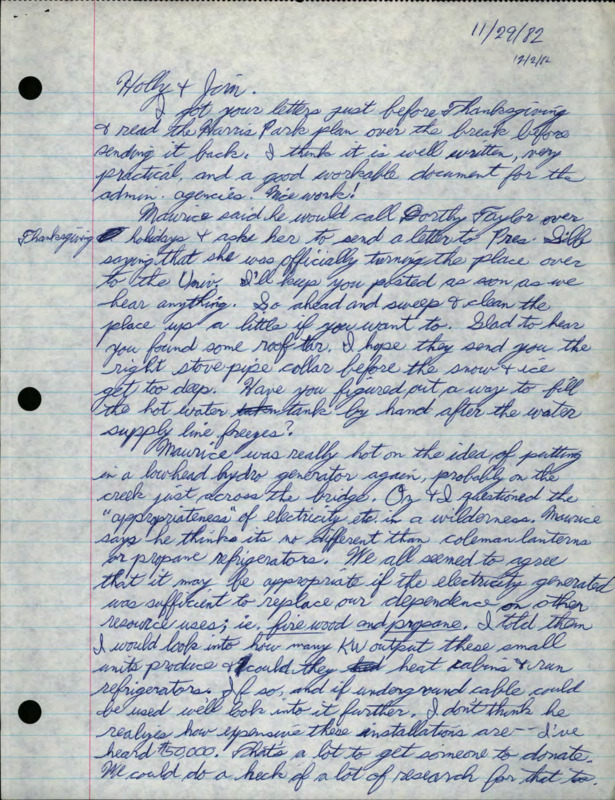 11/29/82
12/2/82
Holly & Jim.
I got your letters just before Thanksgiving
& read the Harris Park plan over the break before
sending it back. I think it is well written, very
practical, and a good workable document for the
admin. agencies. Nice work!
Maurice said he would call Dorthy Taylor over
Thanksgiving holidays & aske her to send a letter to Pres. Gibb
saying that she was officially turning the place over
to the Univ. I'll keep you posted as soon as we
hear anything. Go ahead and sweep & clean the
place up a little if you want to. Glad to hear
you found some roof tar. I hope they send you the
right stove pipe collar before the snow & ice
get too deep. Have you figured out a way to fill
the hot water tank by hand after the water
supply line freezes?
Maurice was really hot on the idea of putting
in a lowhead hydro generator again, probably on the
creek just across the bridge. Oz & I questioned the
"appropriateness" of electricity etc. in a wilderness. Maurice
says he thinks its no different than coleman lanterns
or propane refrigerators. We all seemed to agree
that it may be appropriate if the electricity generated
was sufficient to replace our dependence on other
resource uses; ie. fire wood and propane. I told them
I would look into how many KW output these small
units produce & could they heat cabins & run
refrigerators. If so, and if underground cable could
be used well look into it further. I don't think he
realizes how expensive these installations are -- I've
heard 000. That's a lot to get someone to donate.
We could do a heck of a lot of research for that too.